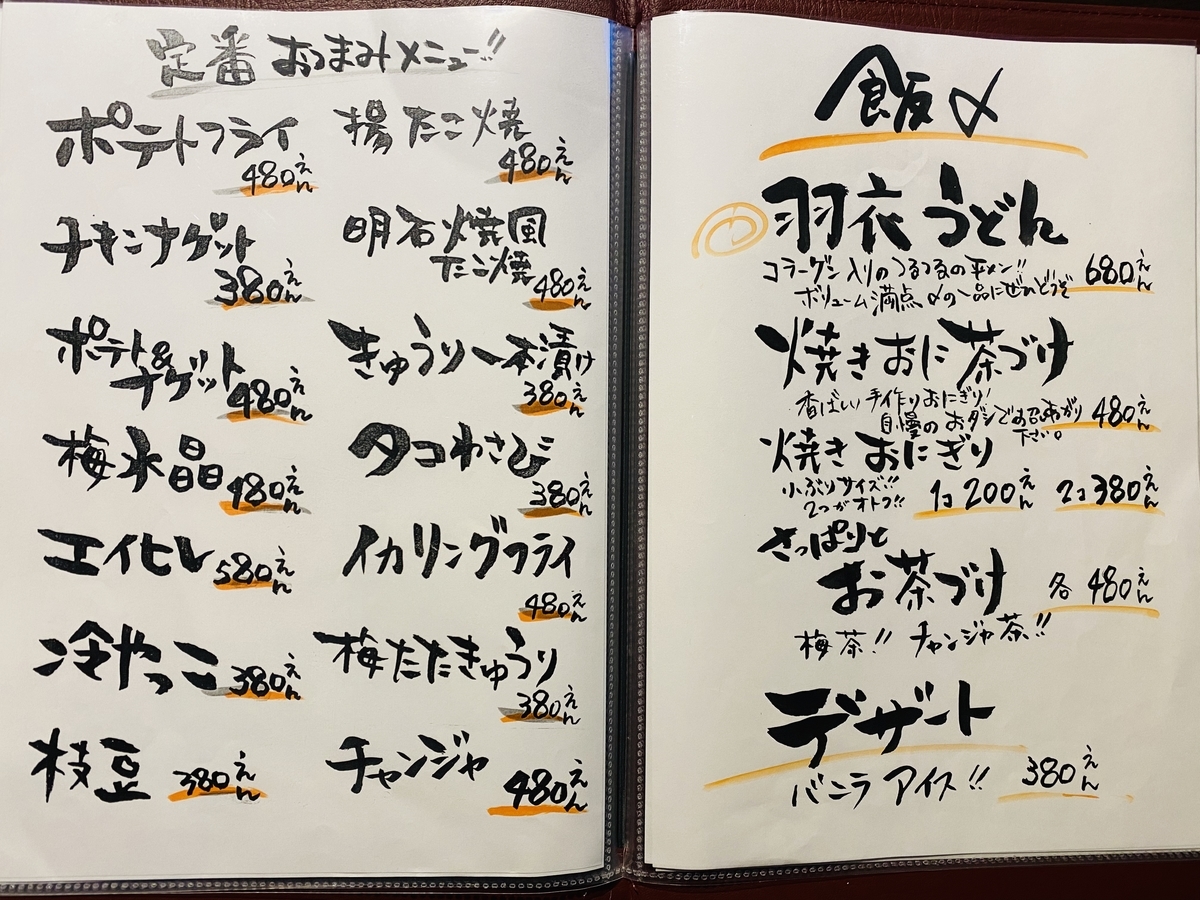 定番 おつまみメニュー!!
ポテトフライ
480えん
チキンナゲット
380えん
ポテト&
ナゲット
480えん
梅水晶
480えん
エイヒレ 580えん
冷やっこ 380えん
枝豆 380えん
揚たこ焼
480えん
明石焼風
たこ焼
480えん
きゅうり一本漬け
380えん
タコわさび
380えん
イカリングフライ
480えん
梅たたきゅうり
380えん
チャンジャ
480えん
飯〆
羽衣うどん
コラーゲン入りのつるつるの平メン!! 680えん
ボリューム満点 〆の一品にぜひどうぞ
焼きおに茶づけ
香ばしい手作りおにぎり!
自慢のおダシでお召しあがり 480えん
下さい。
焼きおにぎり
小ぶりサイズ!! 1コ200えん 2コ380えん
2つがオトク!!
さっぱりと
お茶づけ 各480えん
梅茶!! チャンジャ茶!!
デザート
バニラアイス!! 380えん